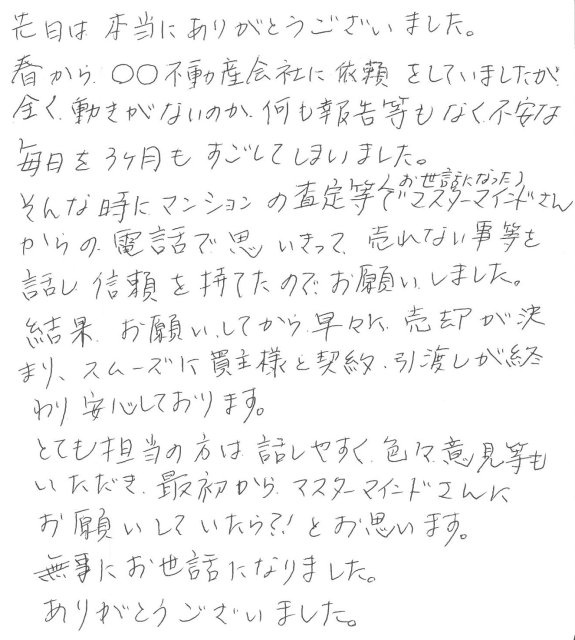 先日は本当にありがとうございました。
春から、〇〇不動産会社に依頼をしていましたが
全く動きがないのか、何も報告等もなく、不安な
毎日を3ヶ月もすごしてしまいました。
(お世話になった)
そんな時にマンションの査定等でマスターマインドさん
からの電話で思いきって、売れない事等を
話し信頼を持てたのでお願いしました。
結果、お願いしてから早々に、売却が決
まり、スムーズに買主様と契約、引渡しが終
わり安心しております。
とても担当の方は話しやすく、色々、意見等も
いただき、最初からマスターマインドさんに
お願いしていたら?!とお思います。
無事にお世話になりました。
ありがとうございました。